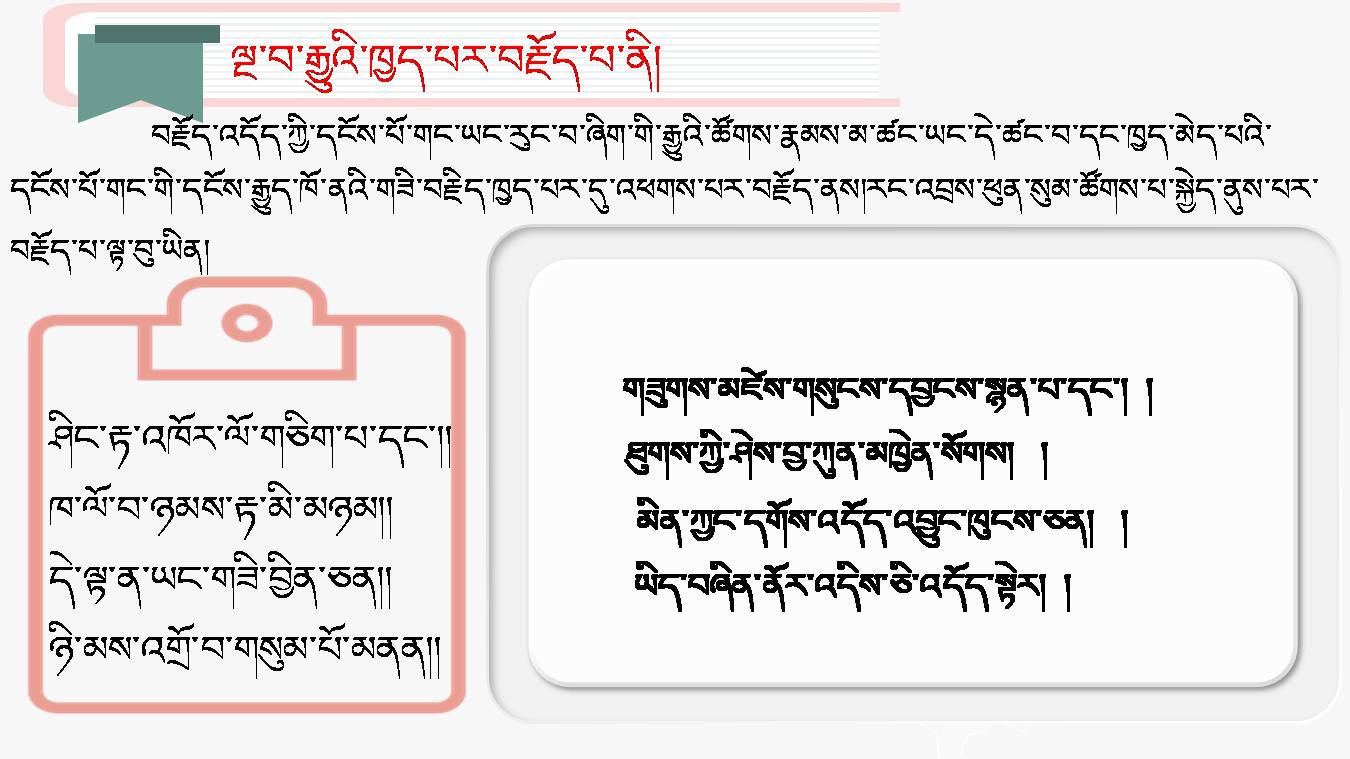 ལྔ་བ་རྒྱུའི་ཁྱད་པར་བརྗོད་པ་ནི།
བརྗོད་འདོད་ཀྱི་དངོས་པོ་གང་ཡང་རུང་བ་ཞིག་གི་རྒྱུའི་ཚོགས་རྣམས་མ་ཚང་ཡང་དེ་ཚང་བ་དང་ཁྱད་མེད་པའི་
དངོས་པོ་གང་གི་དངོས་རྒྱུད་ཁོ་ནའི་གཟི་བརྗིད་ཁྱད་པར་དུ་འཕགས་པར་བརྗོད་ནས།རང་འབྲས་ཕུན་སུམ་ཚོགས་པ་སྐྱེད་ནུས་པར་
བརྗོད་པ་ལྟ་བུ་ཡིན།
ཤིང་རྟ་འཁོར་ལོ་གཅིག་པ་དང་།།
ཁ་ལོ་བ་ཉམས་རྟ་མི་མཉམ།།
དེ་ལྟ་ན་ཡང་གཟི་བྱིན་ཅན།།
ཉི་མས་འགྲོ་བ་གསུམ་པོ་མནན།།
གཟུགས་མཛེས་གསུངས་དབྱངས་སྙན་པ་དང་། །
ཐུགས་ཀྱི་ཤེས་བྱ་ཀུན་མཁྱེན་སོགས། །
མིན་ཀྱང་དགོས་འདོད་འབྱུང་ཁུངས་ཅན། །
ཡིད་བཞིན་ནོར་འདིས་ཅི་འདོད་སྟེར། །